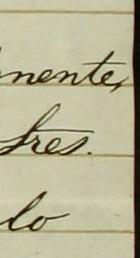 nente,
tres.
lo